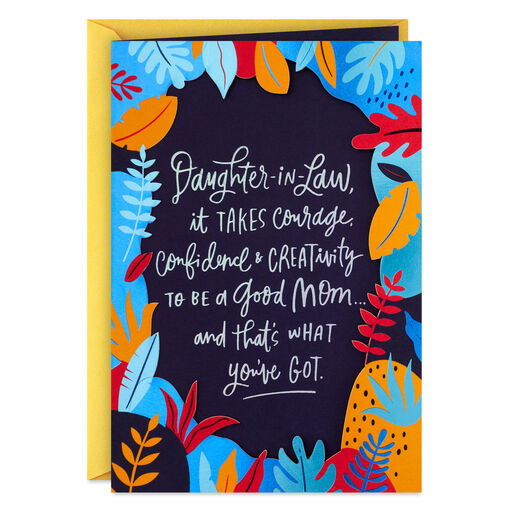 Daughter-in-Law,
it TAKES Courage,
Confidence & CREATiviTY
TO BE a good MOM...
and that's WHAT
you've GOT.